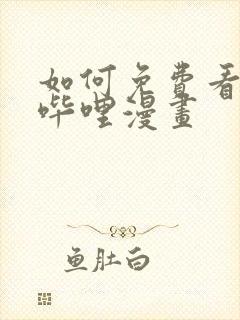 如何免费看
哔哩漫畫
鱼肚白